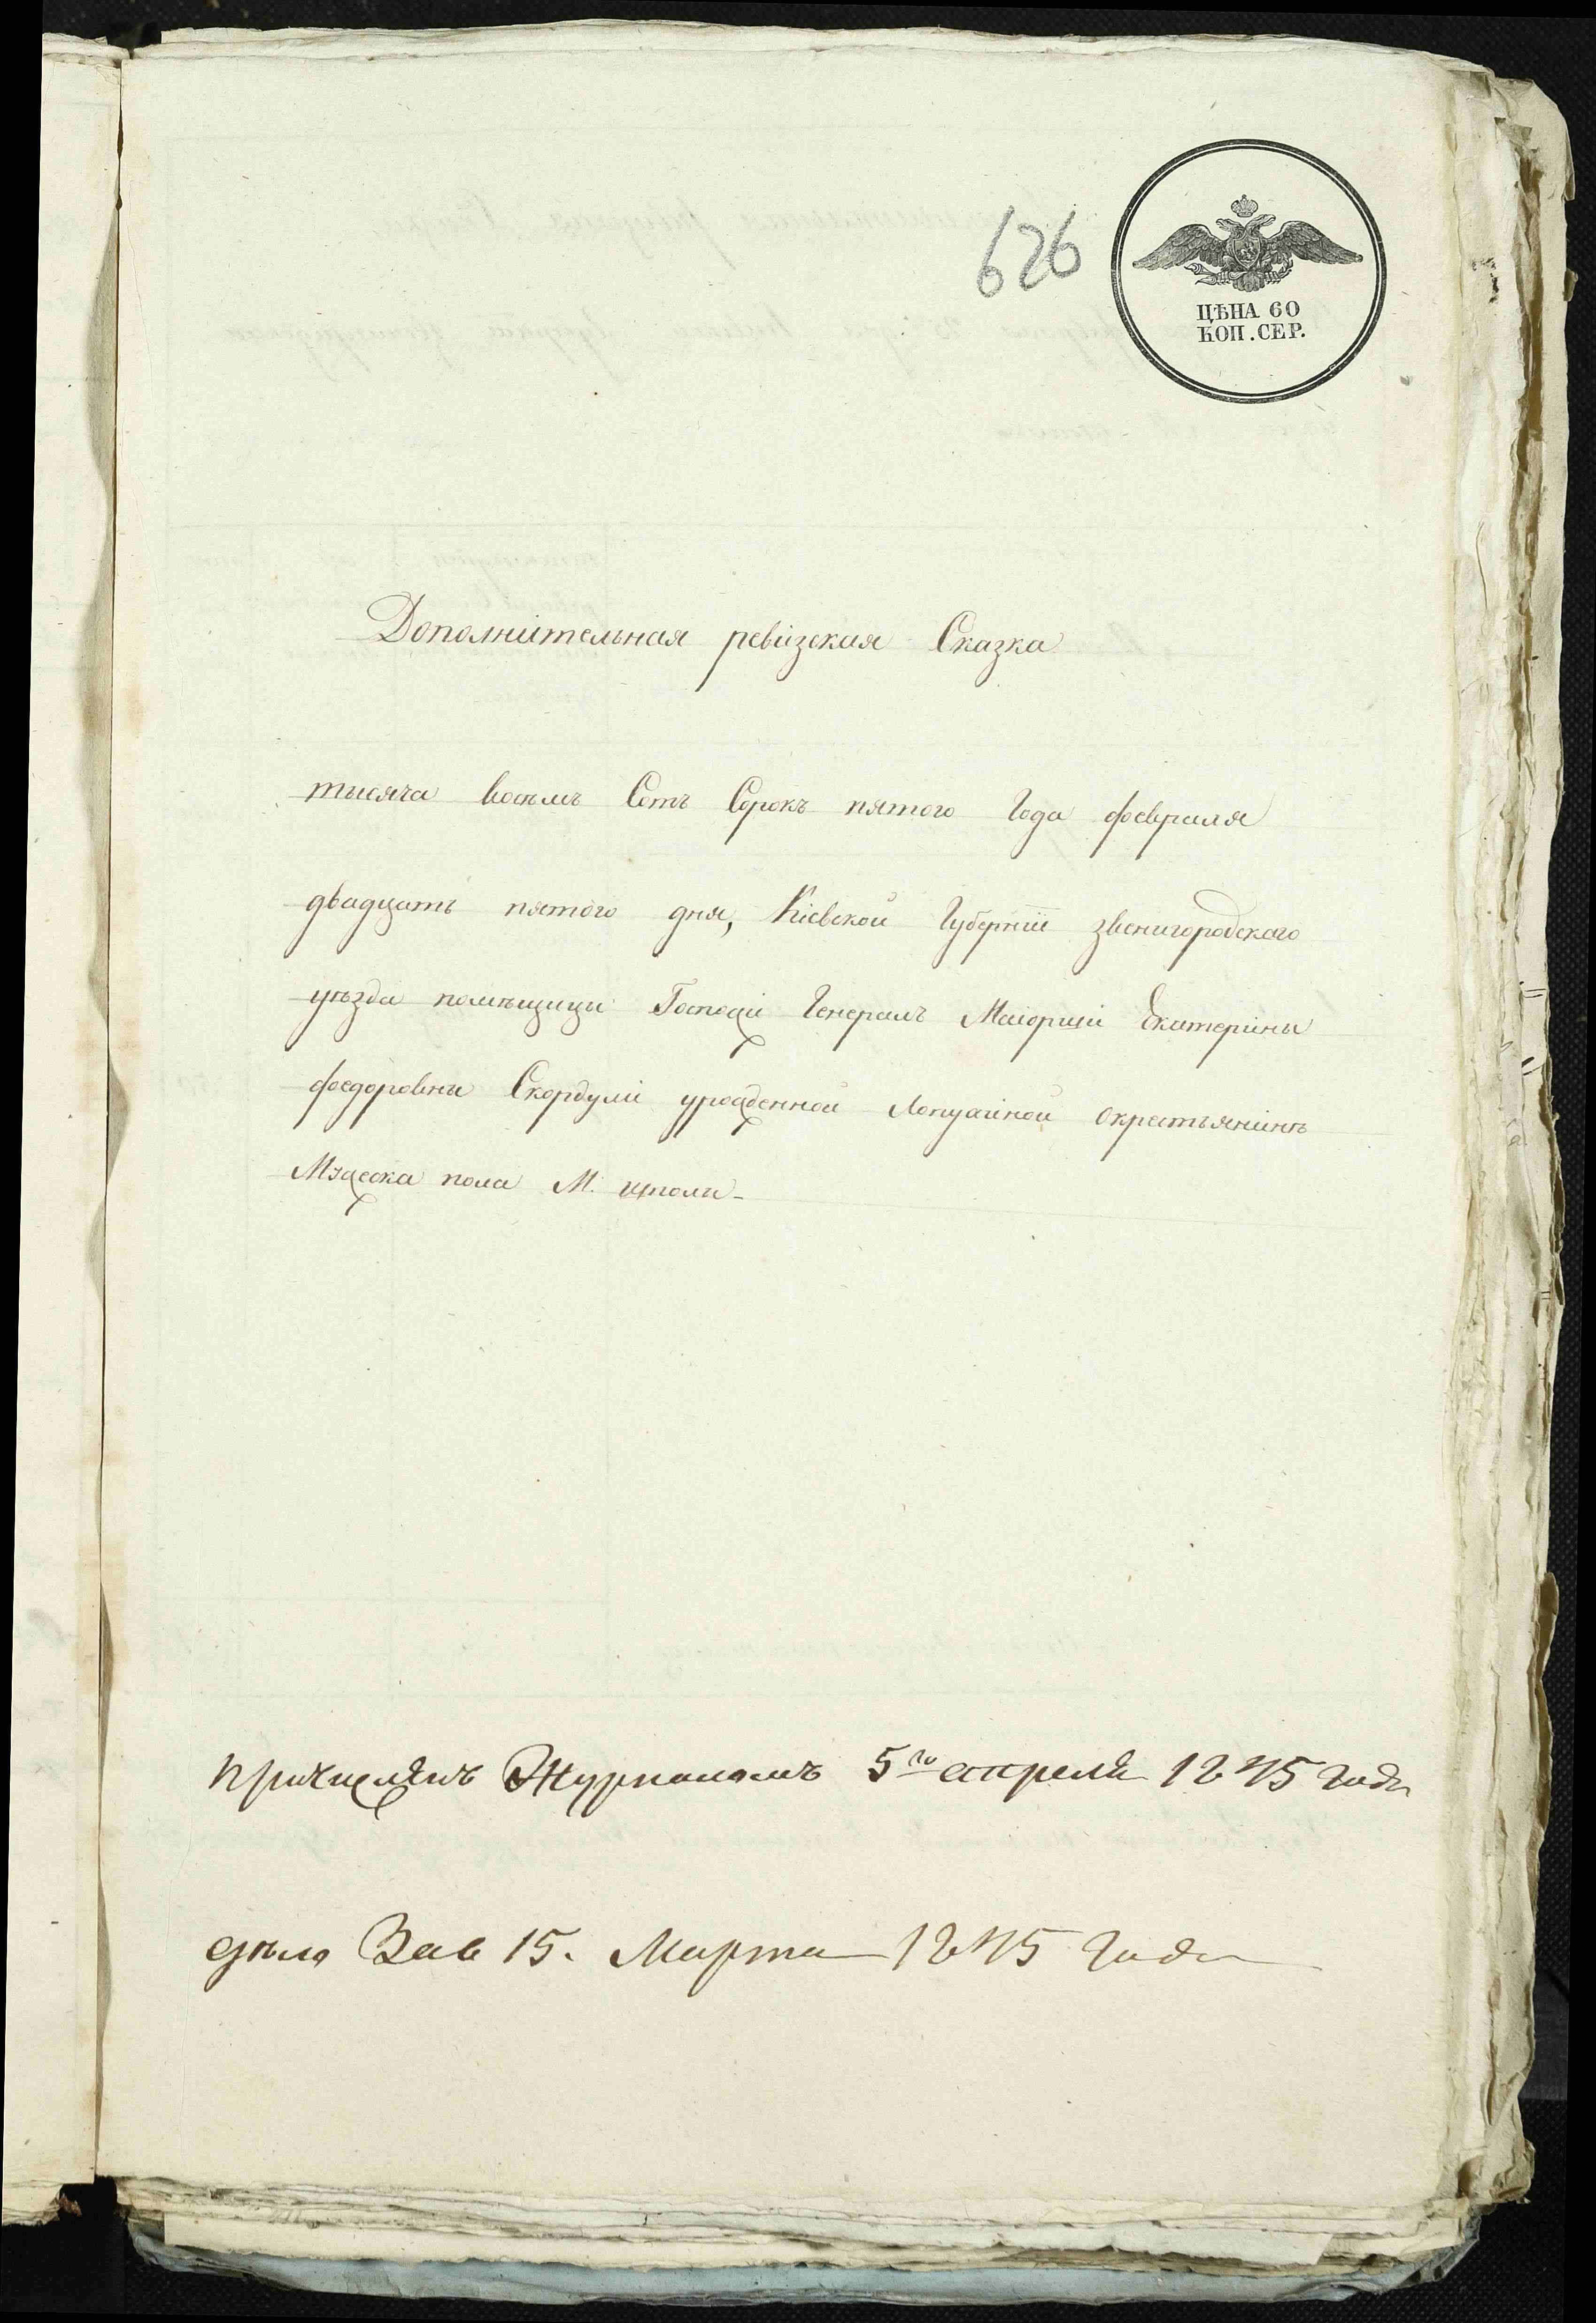 626
ЦѢНА 60
КОП. СЕР.
Дополнительная ревизская Сказка
тысяча восемъ Сотъ Сорокъ пятого Года февраля
двадцать пятого дня, Кіевской Губерніи звенигородскаго
уѣзда помѣщицы Госпожи Генералъ Маіорши Екатерины
федоровны урожденной Лопухиной окрестьянинѣ
Мужеска пола М. шполы
Журналомъ 5го апреля 1845 года
дѣло 15. Марта 1845 Года